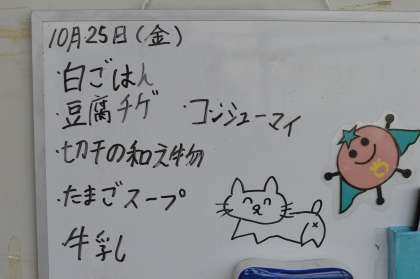 10月25日(金)
・白ごはん
・豆腐チゲ ・コーンシューマイ
・切干の和え物
・たまごスープ
牛乳